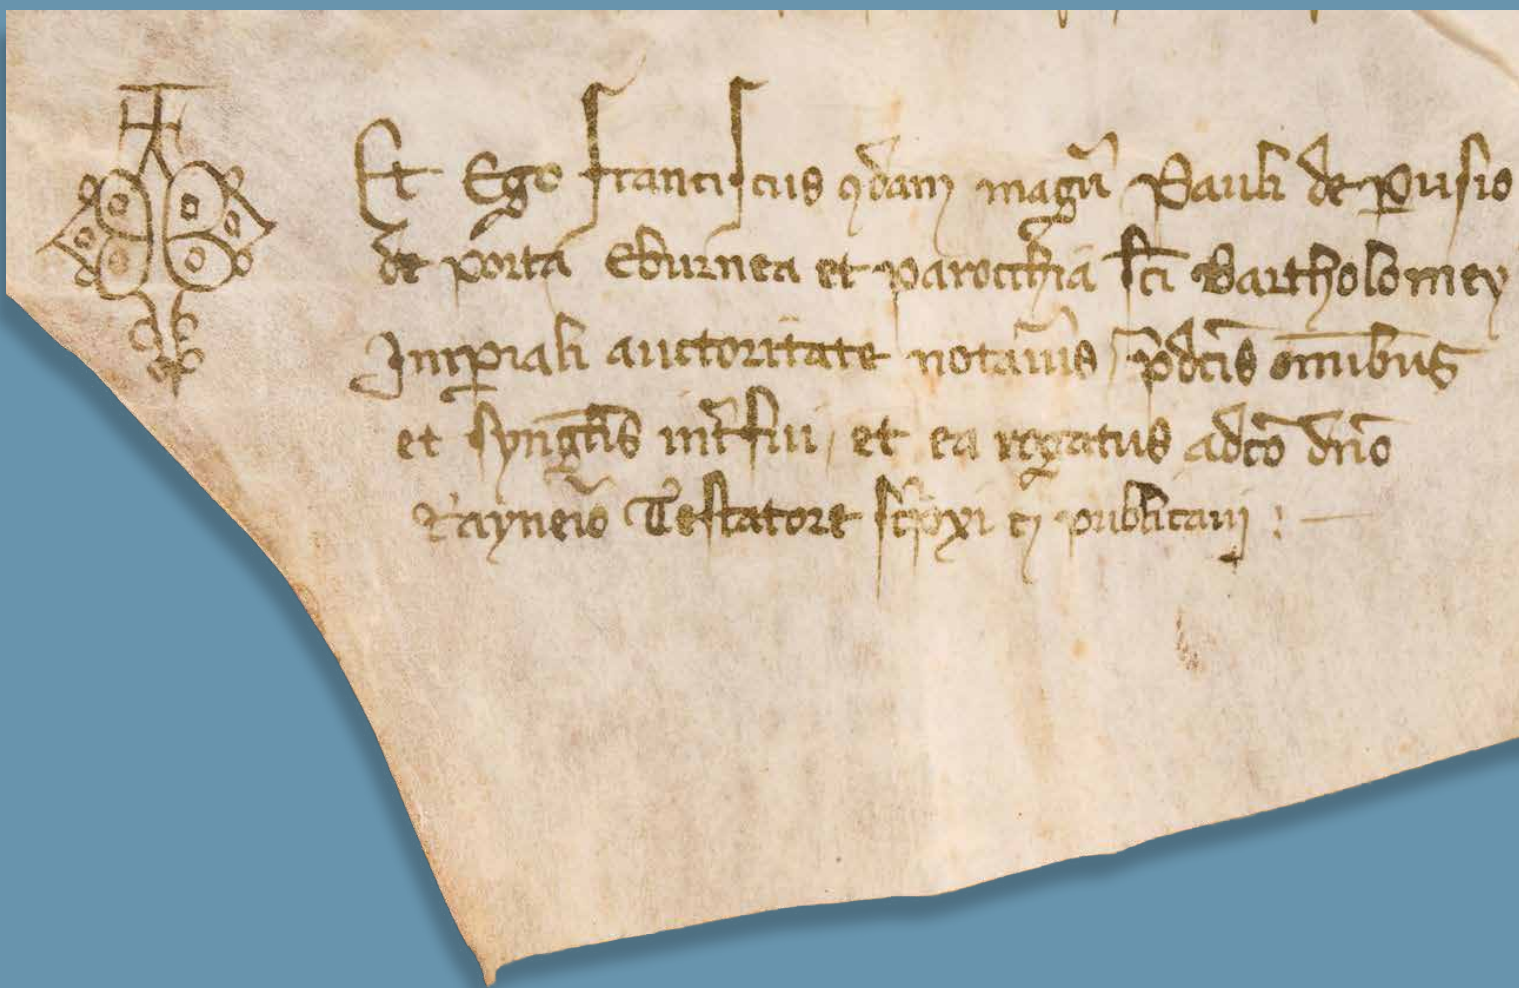 Et Ego franciscus qdam magr̄i Pauli de pusio
de porta Eburnea et parocchia sc̄i Bartholomey
Impiali auctoritate notarius p̄dc̄is om̄ibus
et syngl̄is int̄fui, et ea rogatus adc̄o dn̄o
Rayneiō Testatore sc̄pxi et publicavi :—